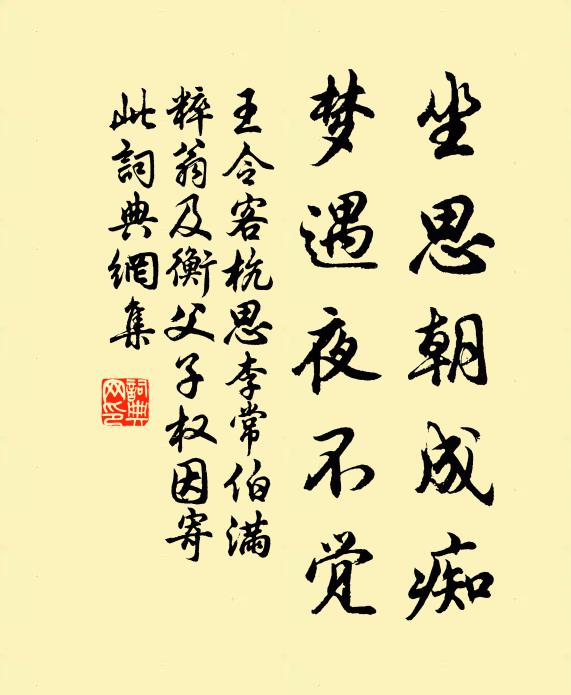 坐思朝成痴
梦遇夜不觉
王令客杭思李常伯满
粹翁及衡父子权因寄
此詞典網集
詞典
网印